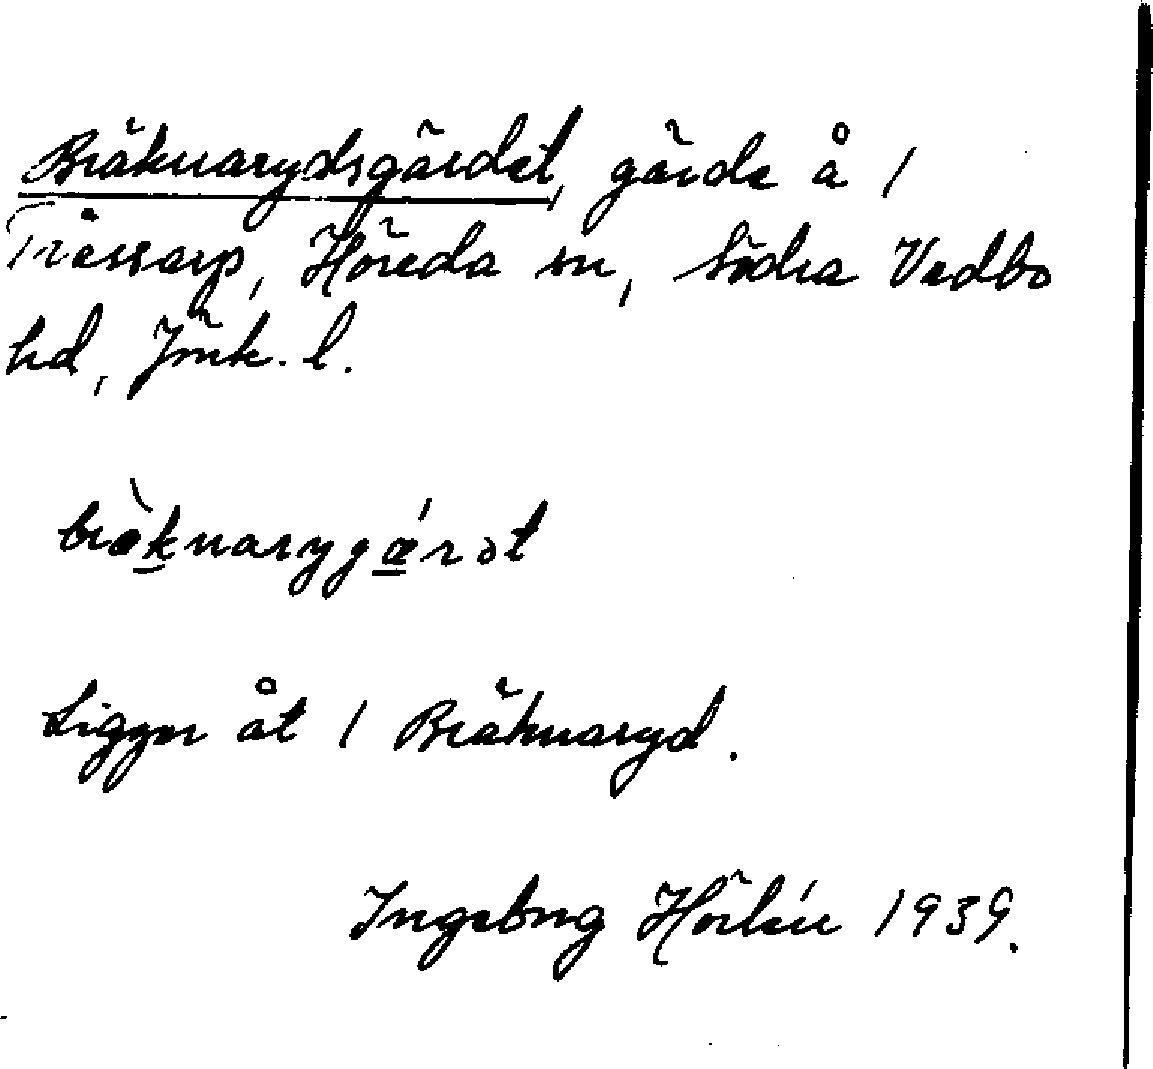 Bräknarydsgärdet, gärde å /
Tråssarp, Höreda sn, Södra Vedbo
hd, Jönk. l.
bræ̀knarygǽrət
Ligger åt / Bräknaryd.
Ingeborg Hörlén 1939.